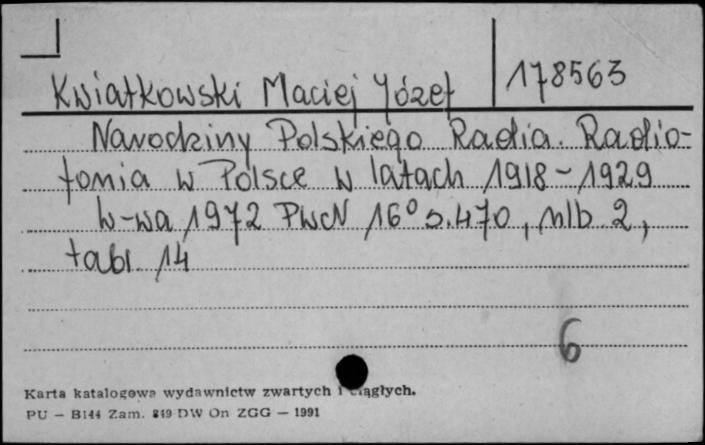 Kwiatkowski Maciej Józef 178563
Narodziny Polskiego Radia. Radio-
fonia w Polsce w latach 1918-1929
W-wa 1972 PWN 16° s. 470, nlb 2,
tabl. 14
6
Karta katalogowa wydawnictw zwartych i ciągłych.
PU - B144 Zam. 849 DW On ZGG - 1991